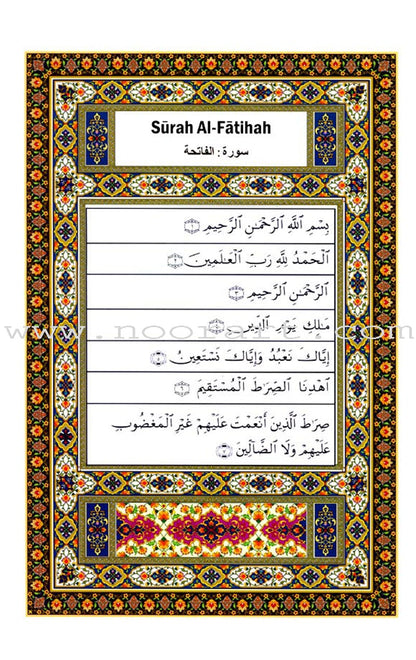 Sūrah Al-Fātihah
سورة : الفاتحة
بِسْمِ ٱللَّهِ ٱلرَّحْمَٰنِ ٱلرَّحِيمِ ۝١
ٱلْحَمْدُ لِلَّهِ رَبِّ ٱلْعَٰلَمِينَ ۝٢
ٱلرَّحْمَٰنِ ٱلرَّحِيمِ ۝٣
مَٰلِكِ يَوْمِ ٱلدِّينِ ۝٤
إِيَّاكَ نَعْبُدُ وَإِيَّاكَ نَسْتَعِينُ ۝٥
ٱهْدِنَا ٱلصِّرَٰطَ ٱلْمُسْتَقِيمَ ۝٦
صِرَٰطَ ٱلَّذِينَ أَنْعَمْتَ عَلَيْهِمْ غَيْرِ ٱلْمَغْضُوبِ
عَلَيْهِمْ وَلَا ٱلضَّآلِّينَ ۝٧
www.noorart.com